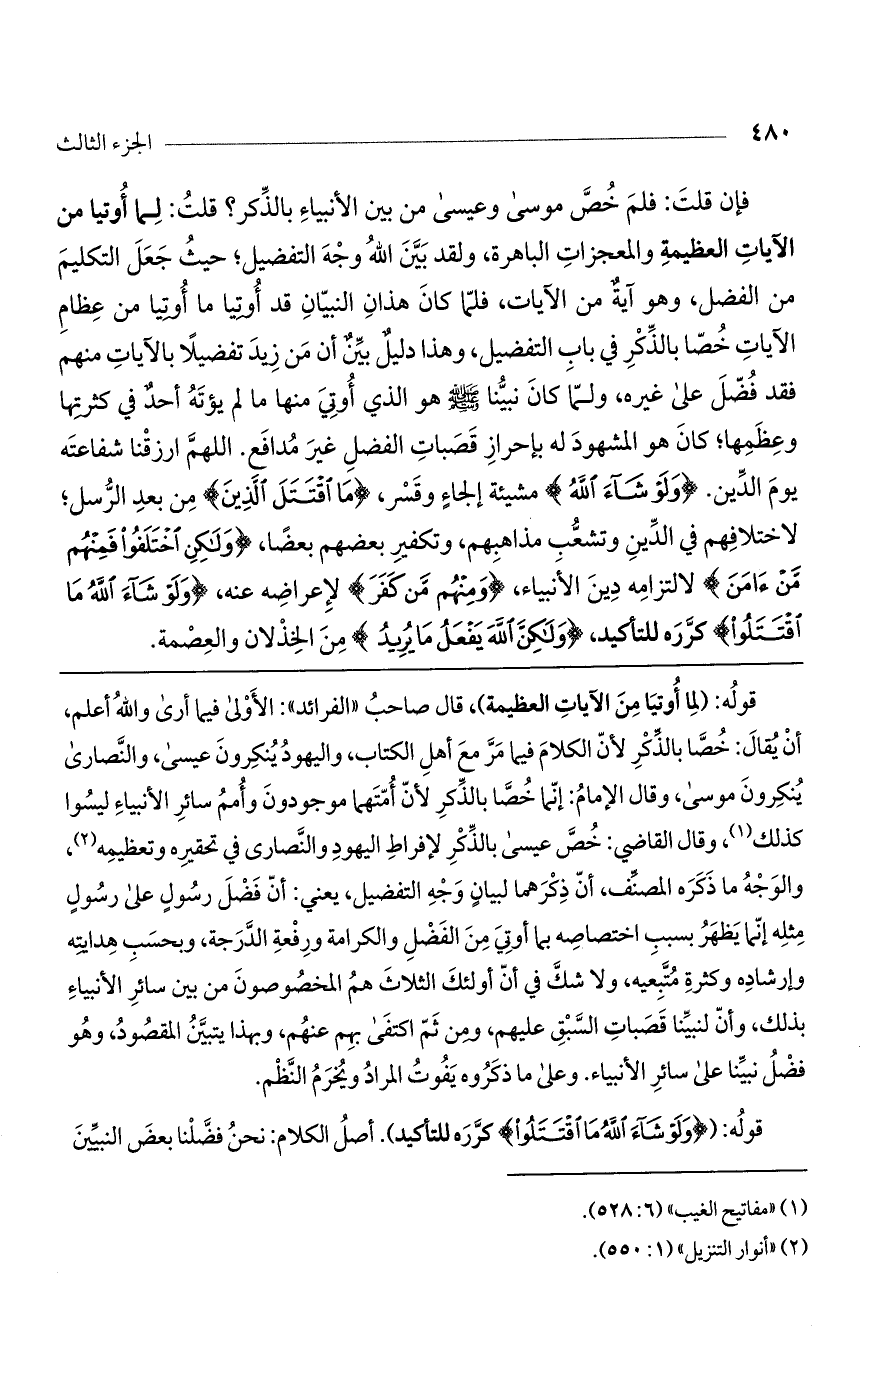 ٤٨٠ الجزء الثالث
فإن قلتَ: فلمَ خُصَّ موسىٰ وعيسىٰ من بين الأنبياءِ بالذِّكر؟ قلتُ: لِـما أُوتيا من
الآياتِ العظيمةِ والمعجزاتِ الباهرة، ولقد بَيَّنَ اللهُ وجْهَ التفضيل؛ حيثُ جَعَلَ التكليمَ
من الفضل، وهو آيةٌ من الآيات، فلمّا كانَ هذانِ النبيّانِ قد أُوتِيا ما أُوتِيا من عِظامِ
الآياتِ خُصّا بالذِّكْرِ في بابِ التفضيل، وهذا دليلٌ بيِّنٌ أن مَن زِيدَ تفضيلًا بالآياتِ منهم
فقد فُضِّلَ علىٰ غيره، ولـمّا كانَ نبيُّنا ﷺ هو الذي أُوتِيَ منها ما لم يؤتَهُ أحدٌ في كثرتِها
وعِظَمِها؛ كانَ هو المشهودَ له بإحرازِ قَصَباتِ الفضلِ غيرَ مُدافَع. اللهمَّ ارزقْنا شفاعتَه
يومَ الدِّين. ﴿وَلَوْ شَآءَ ٱللَّهُ﴾ مشيئة إلجاءٍ وقَسْر، ﴿مَا ٱقْتَتَلَ ٱلَّذِينَ﴾ مِن بعدِ الرُّسل؛
لاختلافِهم في الدِّينِ وتشعُّبِ مذاهبِهم، وتكفيرِ بعضهم بعضًا، ﴿وَلَٰكِنِ ٱخْتَلَفُوا۟ فَمِنْهُم
مَّنْ ءَامَنَ﴾ لالتزامِه دِينَ الأنبياء، ﴿وَمِنْهُم مَّن كَفَرَ﴾ لإعراضِه عنه، ﴿وَلَوْ شَآءَ ٱللَّهُ مَا
ٱقْتَتَلُوا۟﴾ كرَّرَه للتأكيد، ﴿وَلَٰكِنَّ ٱللَّهَ يَفْعَلُ مَا يُرِيدُ﴾ مِنَ الخِذْلان والعِصْمة.
قولُه: (لِما أُوتيَا مِنَ الآياتِ العظيمة)، قال صاحبُ «الفرائد»: الأَوْلىٰ فيما أرىٰ واللهُ أعلم،
أنْ يُقالَ: خُصَّا بالذِّكْرِ لأنّ الكلامَ فيما مَرَّ معَ أهلِ الكتاب، واليهودُ يُنكِرونَ عيسىٰ، والنَّصارىٰ
يُنكِرونَ موسىٰ، وقال الإمامُ: إنّما خُصَّا بالذِّكرِ لأنّ أُمّتَهما موجودونَ وأُممُ سائرِ الأنبياءِ ليسُوا
كذلك(١)، وقال القاضي: خُصَّ عيسىٰ بالذِّكْرِ لإفراطِ اليهودِ والنَّصارى في تحقيرِه وتعظيمِه(٢)،
والوَجْهُ ما ذَكَرَه المصنِّف، أنّ ذِكْرَهما لبيانِ وَجْهِ التفضيل، يعني: أنّ فَضْلَ رسُولٍ علىٰ رسُولٍ
مِثلِه إنّما يَظهَرُ بسببِ اختصاصِه بما أوتِيَ مِنَ الفَضْلِ والكرامة ورِفْعةِ الدَّرَجة، وبحسَبِ هِدايتِه
وإرشادِه وكثرةِ مُتَّبِعيه، ولا شكَّ في أنّ أولئكَ الثلاثَ همُ المخصُوصونَ من بين سائرِ الأنبياءِ
بذلك، وأنّ لنبيِّنا قَصَباتِ السَّبْقِ عليهم، ومِن ثَمّ اكتفَىٰ بهِم عنهُم، وبهذا يتبيَّنُ المقصُودُ، وهُو
فضْلُ نبيِّنا علىٰ سائرِ الأنبياء. وعلىٰ ما ذكَرُوه يَفُوتُ المرادُ ويُخرَمُ النَّظْم.
قولُه: (﴿وَلَوْ شَآءَ ٱللَّهُ مَا ٱقْتَتَلُوا۟﴾ كرَّرَه للتأكيد). أصلُ الكلام: نحنُ فضَّلْنا بعضَ النبيِّينَ
(١) «مفاتيح الغيب» (٦: ٥٢٨).
(٢) «أنوار التنزيل» (١: ٥٥٠).